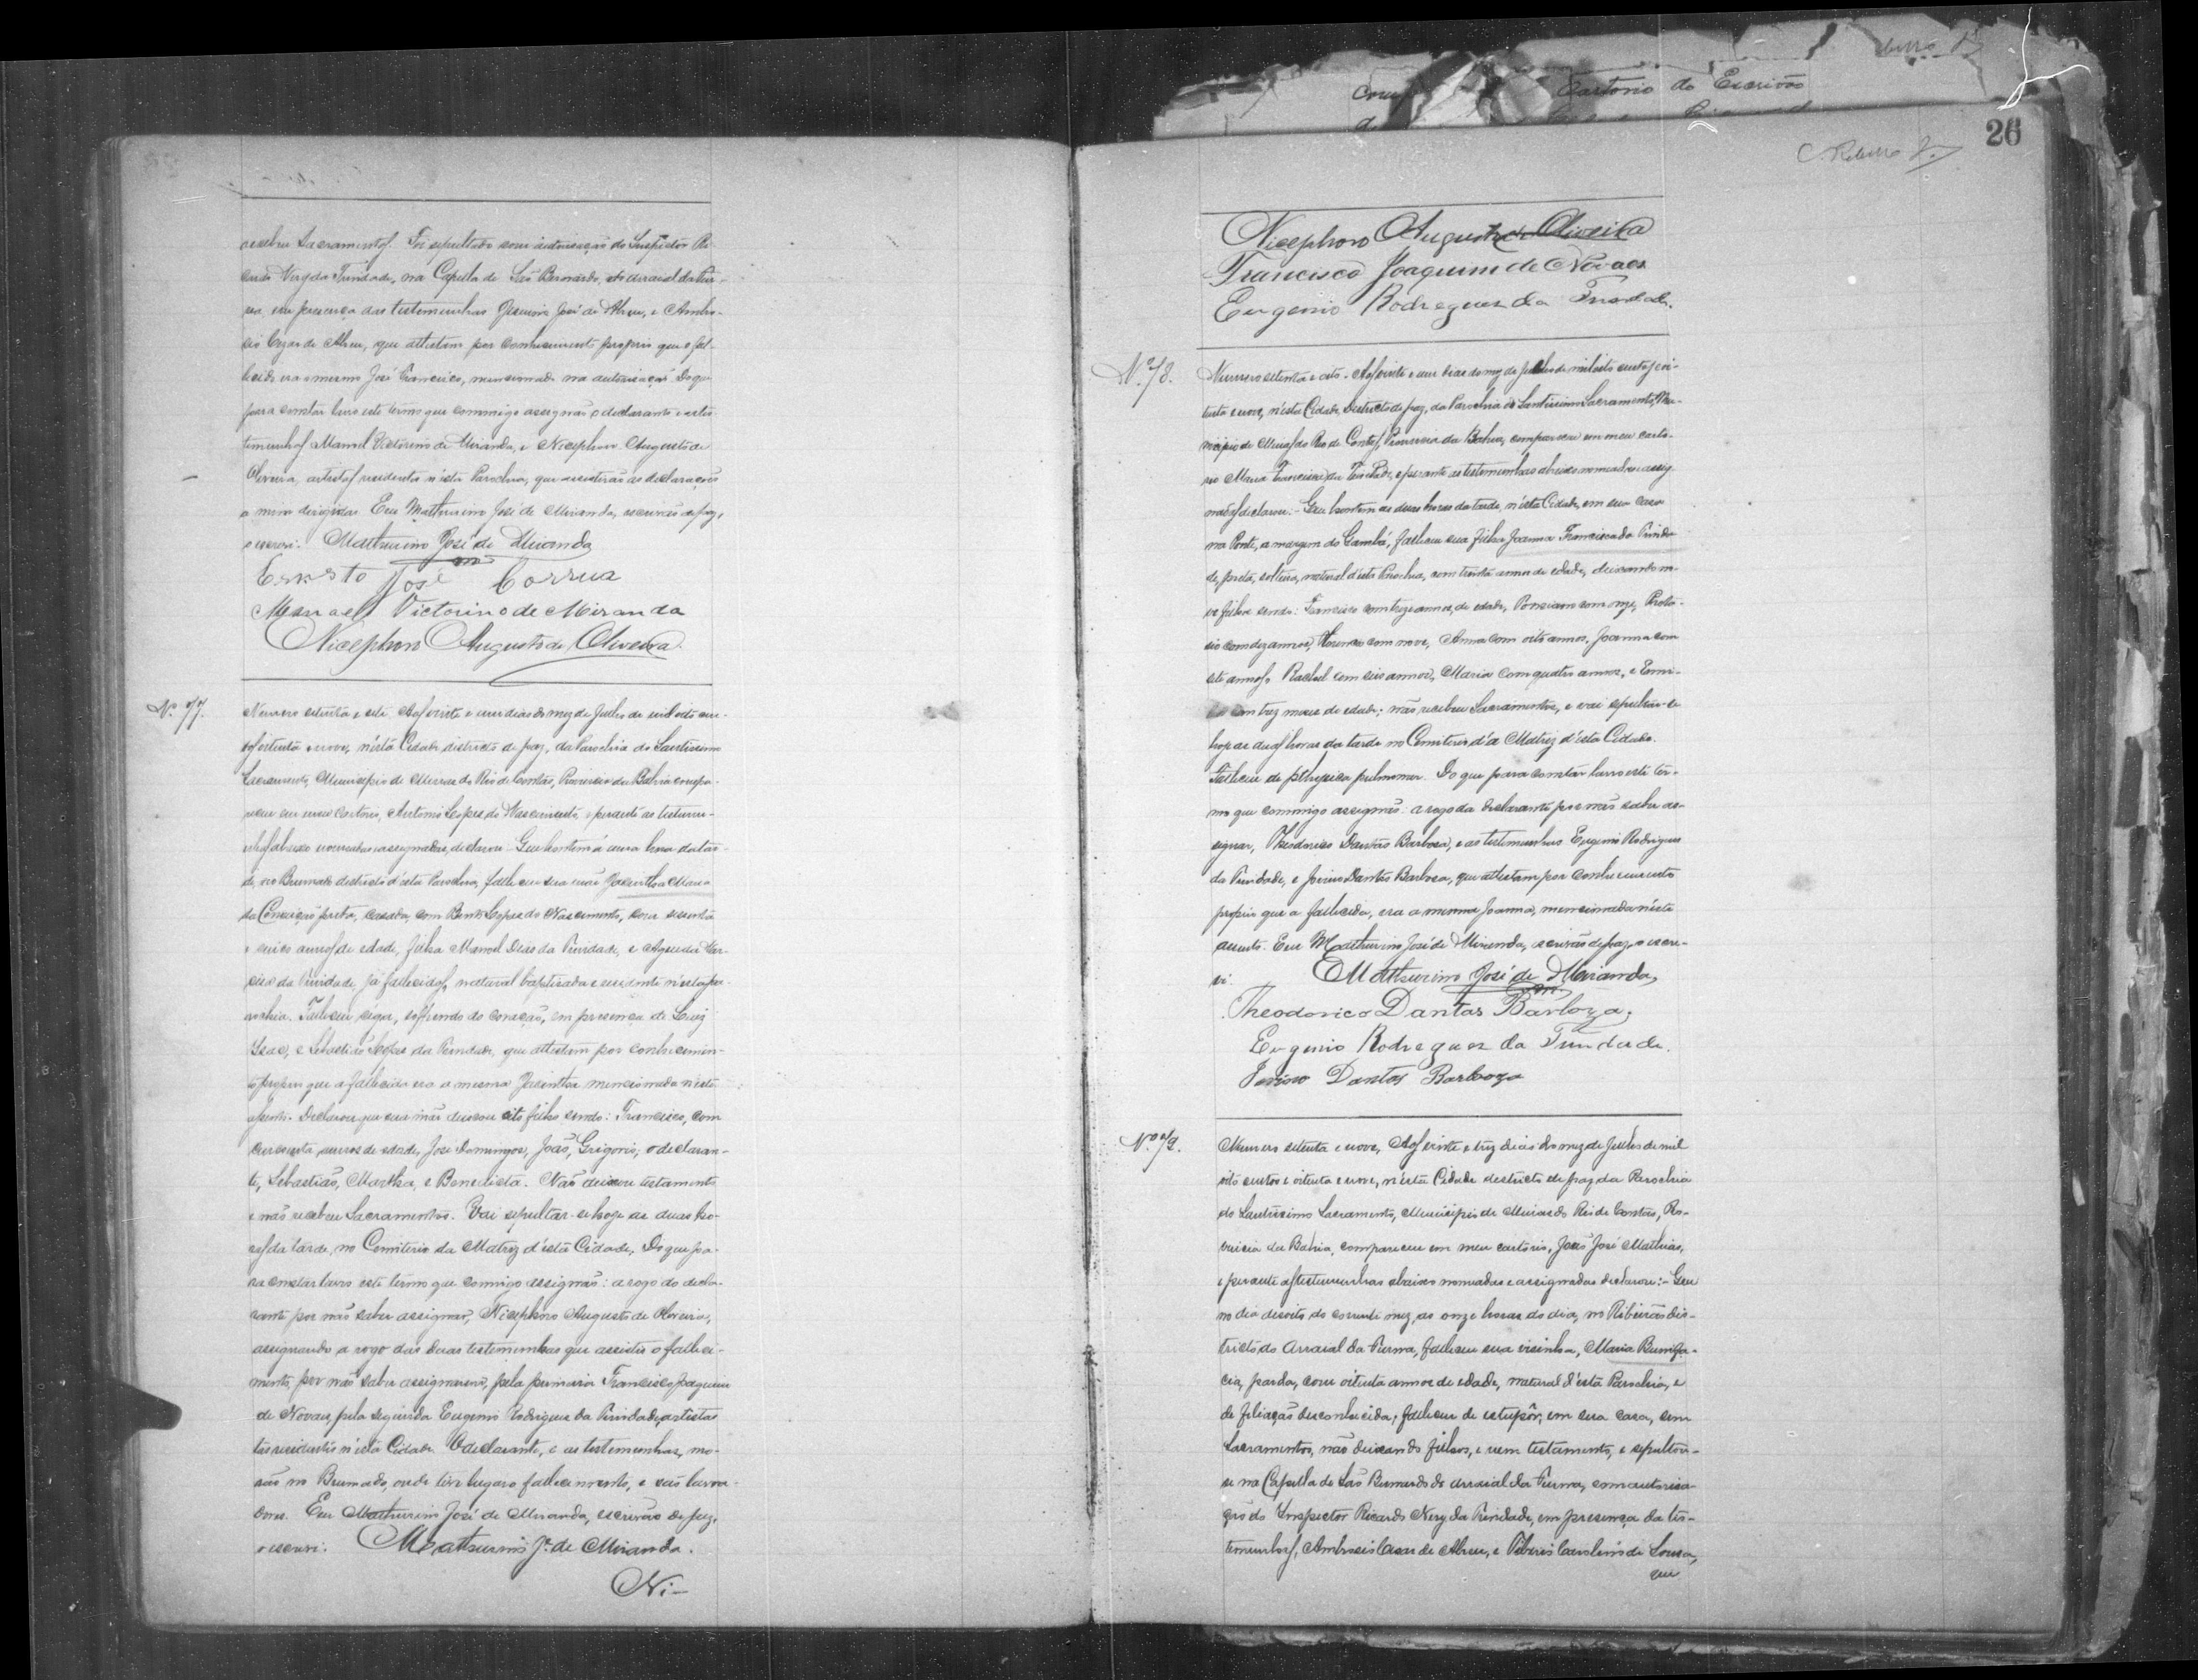 recebeu Sacramentos. Foi sepultado com autorisação do Inspector Ri-
cardo Nery da Trindade, na Capella de São Bernardo, do arraial da Fur-
na, em presença das testemunhas José de Abreu, e Ambro-
sio Cezar de Abreu, que attestam por conhecimento proprio que o fal-
lecido era o mesmo José Francisco, mencionado na autorisação. Do que
para constar lavro este termo que commigo assignão o declarante e as tes-
temunhas Manoel Victorino de Miranda, e Nicephoro Augusto de
Oliveira, artistas residentes n'esta Parochia, que assistirão as declarações
a mim dirigidas. Eu Mathurino José de Miranda, escrivão de paz,
o escrevi. Mathurino José de Miranda
Ernesto José Correia
Manoel Victorino de Miranda
Nicephoro Augusto de Oliveira.
Nº 77.
Numero setenta e sete. Aos vinte e um dias do mez de Julho de mil oito cen-
tos oitenta e nove, n'esta Cidade districto de paz, da Parochia do Santissimo
Sacramento, Municipio de Minas do Rio de Contas, Provincia da Bahia compa-
receu em meu cartorio, Antonio Lopes do Nascimento, e perante as testemu-
nhas abaixo nomeadas e assignadas, declarou: Que hontem á uma hora da tar-
de, no Brumado districto d'esta Parochia, falleceu sua mãe Jacintha Maria
da Conceição, preta, casada, com Bento Lopes do Nascimento, com sessenta
e cinco annos de edade, filha Manoel Dias da Trindade, e Agueda
da Trindade, já fallecidos, natural baptizada e residente n'esta pa-
rochia. Falleceu cega, soffrendo do coração, em presença de Luiz
e Sebastião Lopes da Trindade, que attestam por conhecimen-
to proprio que a fallecida era a mesma Jacintha mencionada n'este
assento. Declarou que sua mãe deixou oito filhos sendo: Francisco, com
cincoenta annos de edade, José Domingos, João, Grigorio, o declaran-
te, Sebastião, Martha, e Benedicta. Não deixou testamento
e não recebeu Sacramentos. Vai sepultar-se hoje as duas ho-
ras da tarde, no Cemiterio da Matriz d'esta Cidade, Do que pa-
ra constar lavro este termo que commigo assignão: a rogo do decla-
rante por não saber assignar, Nicephoro Augusto de Oliveira,
assignando a rogo das duas testemunhas que assistio o falleci-
mento, por não saber assignarem, pela primeira Francisco Joaquim
de Novaes, pela segunda Eugenio Rodrigues da Trindade, artistas
residentes n'esta Cidade. O declarante, e as testemunhas, mo-
rão no Brumado, onde teve lugar o fallecimento, e são lavra-
dores. Eu Mathurino José de Miranda, escrivão de paz,
o escrevi. Mathurino Jé. de Miranda.
Ni-
Cartorio do Escrivão
26
C. Ribeiro
Nicephoro Augusto de Oliveira
Francisco Joaquim de Novaes
Eugenio Rodrigues da Trindade.
Nº 78.
Numero setenta e oito. Aos vinte e um dias do mez de Julho de mil oito centos oi-
tenta e nove, n'esta Cidade, districto de paz, da Parochia do Santissimo Sacramento, Mu-
nicipio de Minas do Rio de Contas, Provincia da Bahia, compareceu em meu carto-
rio Maria Francisca da Trindade, e perante as testemunhas abaixo nomeadas e assig-
nadas declarou: - Que hontem as duas horas da tarde, n'esta Cidade, em sua casa
na Ponte, a margem do Gambá, falleceu sua filha Joanna Francisca da Trinda-
de, preta, solteira, natural d'esta Parochia, com trinta annos de edade, deixando no-
ve filhos sendo: Francisco com treze annos, de edade, Ponciano com onze, Prota-
sio com dez annos, com nove, Anna com oito annos, Joanna com
sete annos, Rachel com seis annos, Maria com quatro annos, e
com trez mezes de edade; não recebeu Sacramentos, e vai sepultar-se
hoje as duas horas da tarde no Cemiterio d'a Matriz d'esta Cidade.
Falleceu de pthysica pulmonar. Do que para constar lavro este ter-
mo que commigo assignão: a rogo da declarante por não saber as-
signar, Theodorico Dantas Barboza, e as testemunhas Eugenio Rodrigues
da Trindade, e Jovino Dantas Barboza, que attestam por conhecimento
proprio que a fallecida, era a mesma Joanna, mencionada n'este
assento. Eu Mathurino José de Miranda, escrivão de paz, o escre-
vi. Mathurino José de Miranda,
Theodorico Dantas Barboza,
Eugenio Rodrigues da Trindade.
Jovino Dantas Barboza
Nº 79.
Numero setenta e nove, Aos vinte e trez dias do mez de Julho de mil
oito centos e oitenta e nove, n'esta Cidade destricto de paz da Parochia
do Santissimo Sacramento, Municipio de Minas do Rio de Contas, Pro-
vincia da Bahia, compareceu em meu cartorio, João José Mathias,
e perante as testemunhas abaixo nomeadas e assignadas declarou: - Que
no dia desoito do corrente mez, as onze horas do dia, no Ribeirão dis-
tricto do Arraial da Furna, falleceu sua visinha, Maria Bunifa-
cia, parda, com oitenta annos de edade, natural d'esta Parochia, e
de filiação desconhecida; falleceu de estupôr, em sua casa, sem
Sacramentos, não deixando filhos, e nem testamento, e sepultou-
se na Capella de São Bernardo do arraial da Furna, com autorisa-
ção do Inspector Ricardo Nery da Trindade, em presença da tes-
temunhas, Ambrosio Cesar de Abreu, e Tiberio Carolino de Souza,
que